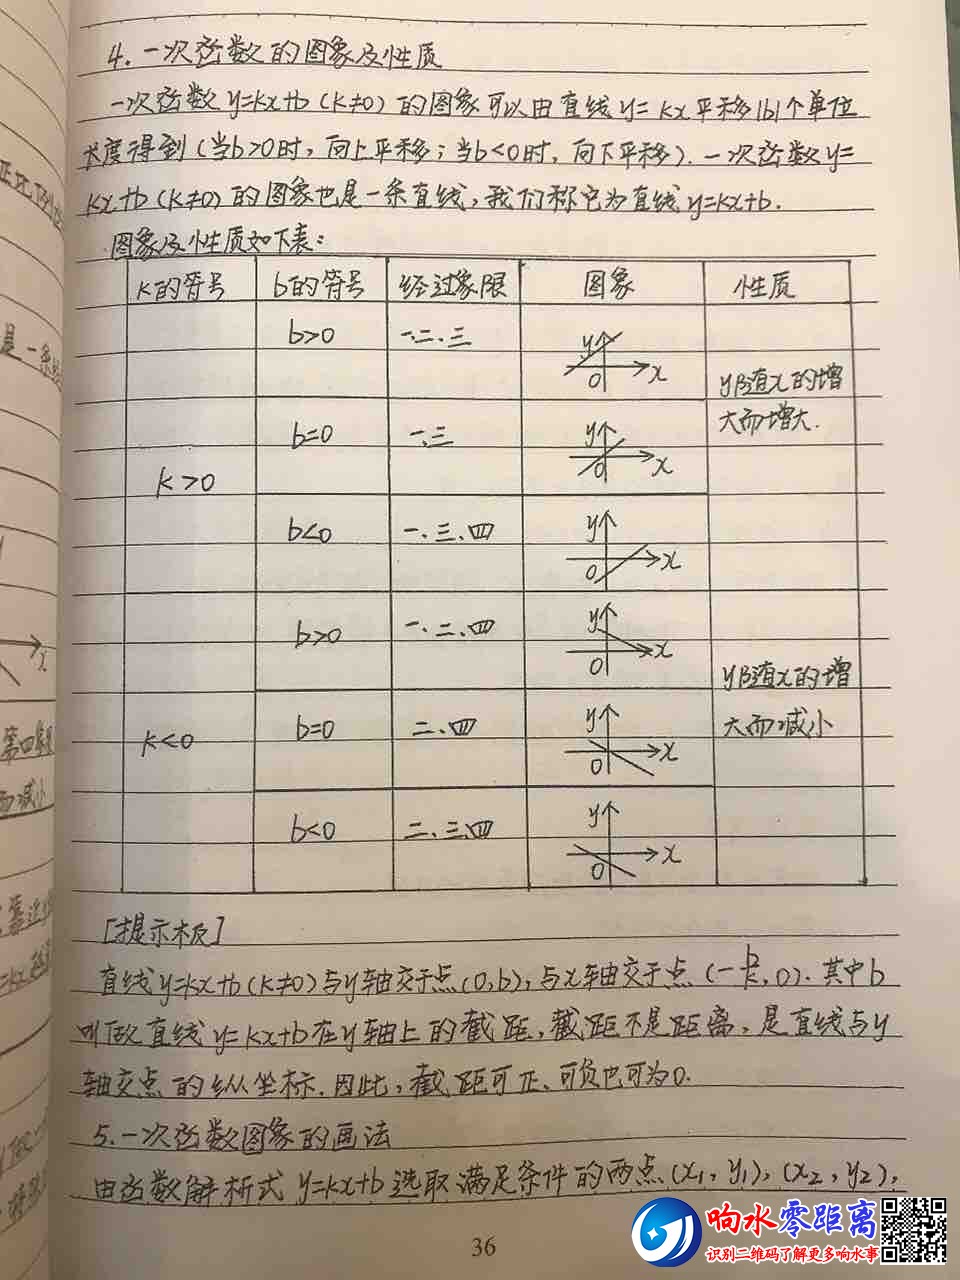 4. 一次函数的图象及性质
一次函数 y=kx+b (k≠0) 的图象可以由直线 y=kx 平移|b|个单位
长度得到 (当b>0时, 向上平移; 当b<0时, 向下平移). 一次函数 y=
kx+b (k≠0) 的图象也是一条直线, 我们称它为直线 y=kx+b.
图象及性质如下表:
k的符号 b的符号 经过象限 图象 性质
b>0 一.二.三 y 0 x
y随x的增
大而增大.
b=0 一.三 y 0 x
k>0
b<0 一、三、四 y 0 x
b>0 一、二、四 y 0 x
y随x的增
大而减小
b=0 二、四 y 0 x
k<0
b<0 二、三、四 y 0 x
[提示板]
直线 y=kx+b (k≠0) 与y轴交于点 (0, b), 与x轴交于点 (-b/k, 0). 其中b
叫做直线 y=kx+b 在y轴上的截距, 截距不是距离, 是直线与y
轴交点的纵坐标. 因此, 截距可正、可负也可为0.
5. 一次函数图象的画法
由函数解析式 y=kx+b 选取满足条件的两点 (x₁, y₁), (x₂, y₂),
36
响水零距离
识别二维码了解更多响水事
是一条
第四象限
而减小